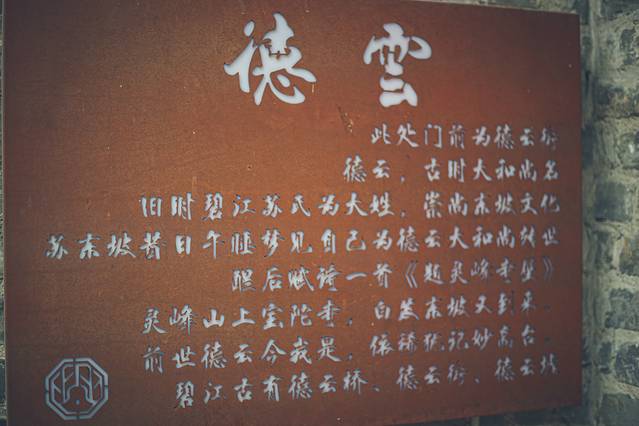 德雲
此处门前为德云
德云，古时大和尚名
旧时碧江苏氏为大姓，崇尚东坡文化
苏东坡昔日午睡梦见自己为德云大和尚转世
醒后赋诗一首《题灵峰寺壁》
灵峰山上宝陀寺，白发东坡又到来。
前世德云今我是，依稀犹记妙高台。
碧江古有德云桥、德云街、德云坊